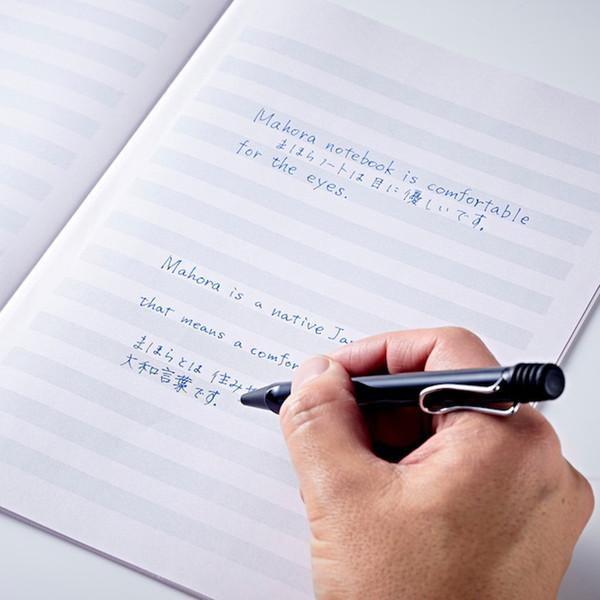 Mahora notebook is comfortable
まほらノートは目に優しいです。
for the eyes.
Mahora is a native Ja
that means a comfor
まほらとは 住みや
大和言葉です。